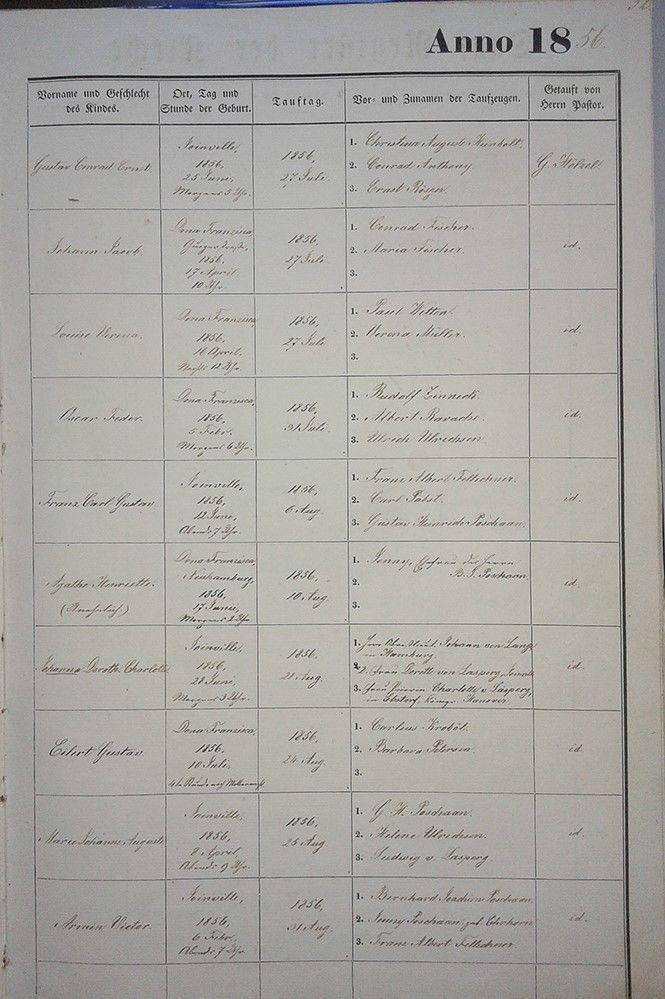 Anno 18 56.
Vorname und Geschlecht des Kindes.
Ort, Tag und Stunde der Geburt.
Tauftag.
Vor- und Zunamen der Taufzeugen.
Getauft von Herrn Pastor.
Gustav Conrad Ernst.
Joinville,
1856,
25 Juni,
Morgens 3 Uhr.
1856,
27 Juli.
1. Christina Auguste
2. Conrad Anthony
3. Ernst
G. Hölzel.
Johann Jacob
Dona Francisca,
1856,
17 April
10 Uhr.
1856,
27 Juli
1. Conrad Fischer.
2. Maria Fischer.
3.
id.
Louise Verena.
Dona Francisca,
1856,
16 April,
12 Uhr.
1856,
27 Juli
1.
2. Verena Müller.
3.
id.
Oscar Feodor.
Dona Francisca,
1856,
5 Febr.
Morgens 6 Uhr.
1856,
31 Juli.
1. Rudolf
2. Albert
3. Ulrich Ulrichsen.
id.
Franz Carl Gustav
Joinville,
1856,
12 Juni,
Abends 7 Uhr.
1856,
6 Aug.
1. Franz Albert
2. Carl Pabst.
3. Gustav Poschaan.
id.
Agathe Henriette.
Dona Francisca,
Neuhamburg,
1856,
17 Januar,
Morgens 2 Uhr.
1856,
10 Aug.
1. Jenny, Ehefrau des Herrn
B. J. Poschaan.
2.
3.
id.
Johanna Doroth. Charlotte
Joinville,
1856,
28 Juni,
Morgens 3 Uhr.
1856.
21 Aug.
1. Johann von
in Hamburg
2. Frau Dorett von Lasperg, Joinville
3. Frau Charlotte v. Lasperg,
Hanover
id.
Eilert Gustav.
Dona Francisca,
1856,
10 Juli,
1856,
24 Aug.
1.
2. Barbara Petersen.
3.
id.
Marie Johanne Auguste
Joinville,
1856,
8 April,
Abends 9 Uhr.
1856,
25 Aug
1. G. H. Poschaan.
2. Helene Ulrichsen.
3. Ludwig v. Lasperg
id.
Armin Victor.
Joinville,
1856,
6 Febr.
Abends 7 Uhr.
1856,
31 Aug.
1. Bernhard Joachim Poschaan
2. Jenny Poschaan, geb.
3. Franz Albert
id.